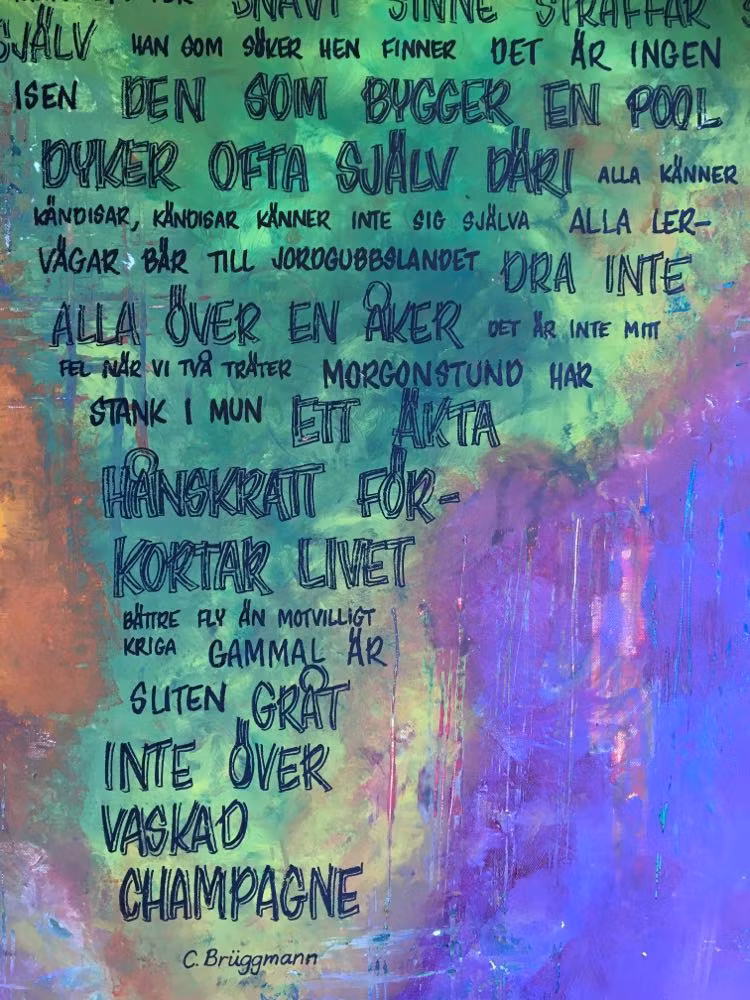 SNÅVT SINNE STRAFFAR
SJÄLV HAN SOM SÖKER HEN FINNER DET ÄR INGEN
ISEN DEN SOM BYGGER EN POOL
DYKER OFTA SJÄLV DÄRI ALLA KÄNNER
KÄNDISAR, KÄNDISAR KÄNNER INTE SIG SJÄLVA ALLA LER-
VÄGAR BÄR TILL JORDGUBBSLANDET DRA INTE
ALLA ÖVER EN ÅKER DET ÄR INTE MITT
FEL NÄR VI TVÅ TRÄTER MORGONSTUND HAR
STANK I MUN ETT ÄKTA
HÅNSKRATT FÖR-
KORTAR LIVET
BÄTTRE FLY ÄN MOTVILLIGT
KRIGA GAMMAL ÄR
SLITEN GRÅT
INTE ÖVER
VASKAD
CHAMPAGNE
C. Brüggmann